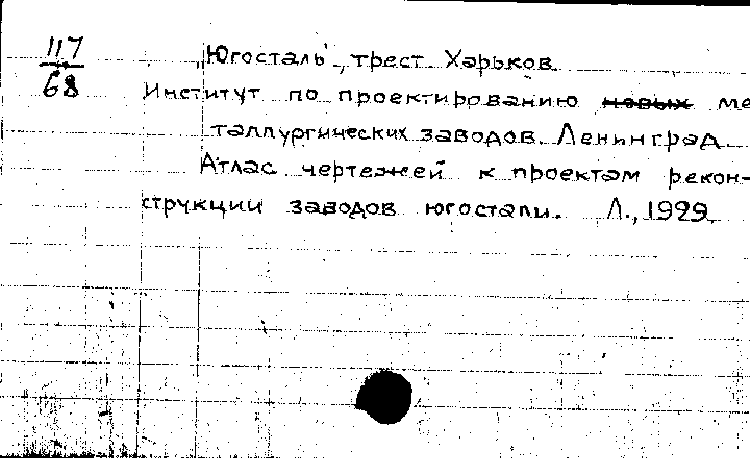 117
68
"Югосталь", трест. Харьков
Институт по проектированию новых ме
таллургических заводов. Ленинград
Атлас чертежей к проектам рекон-
струкции заводов югостали. Л., 1929